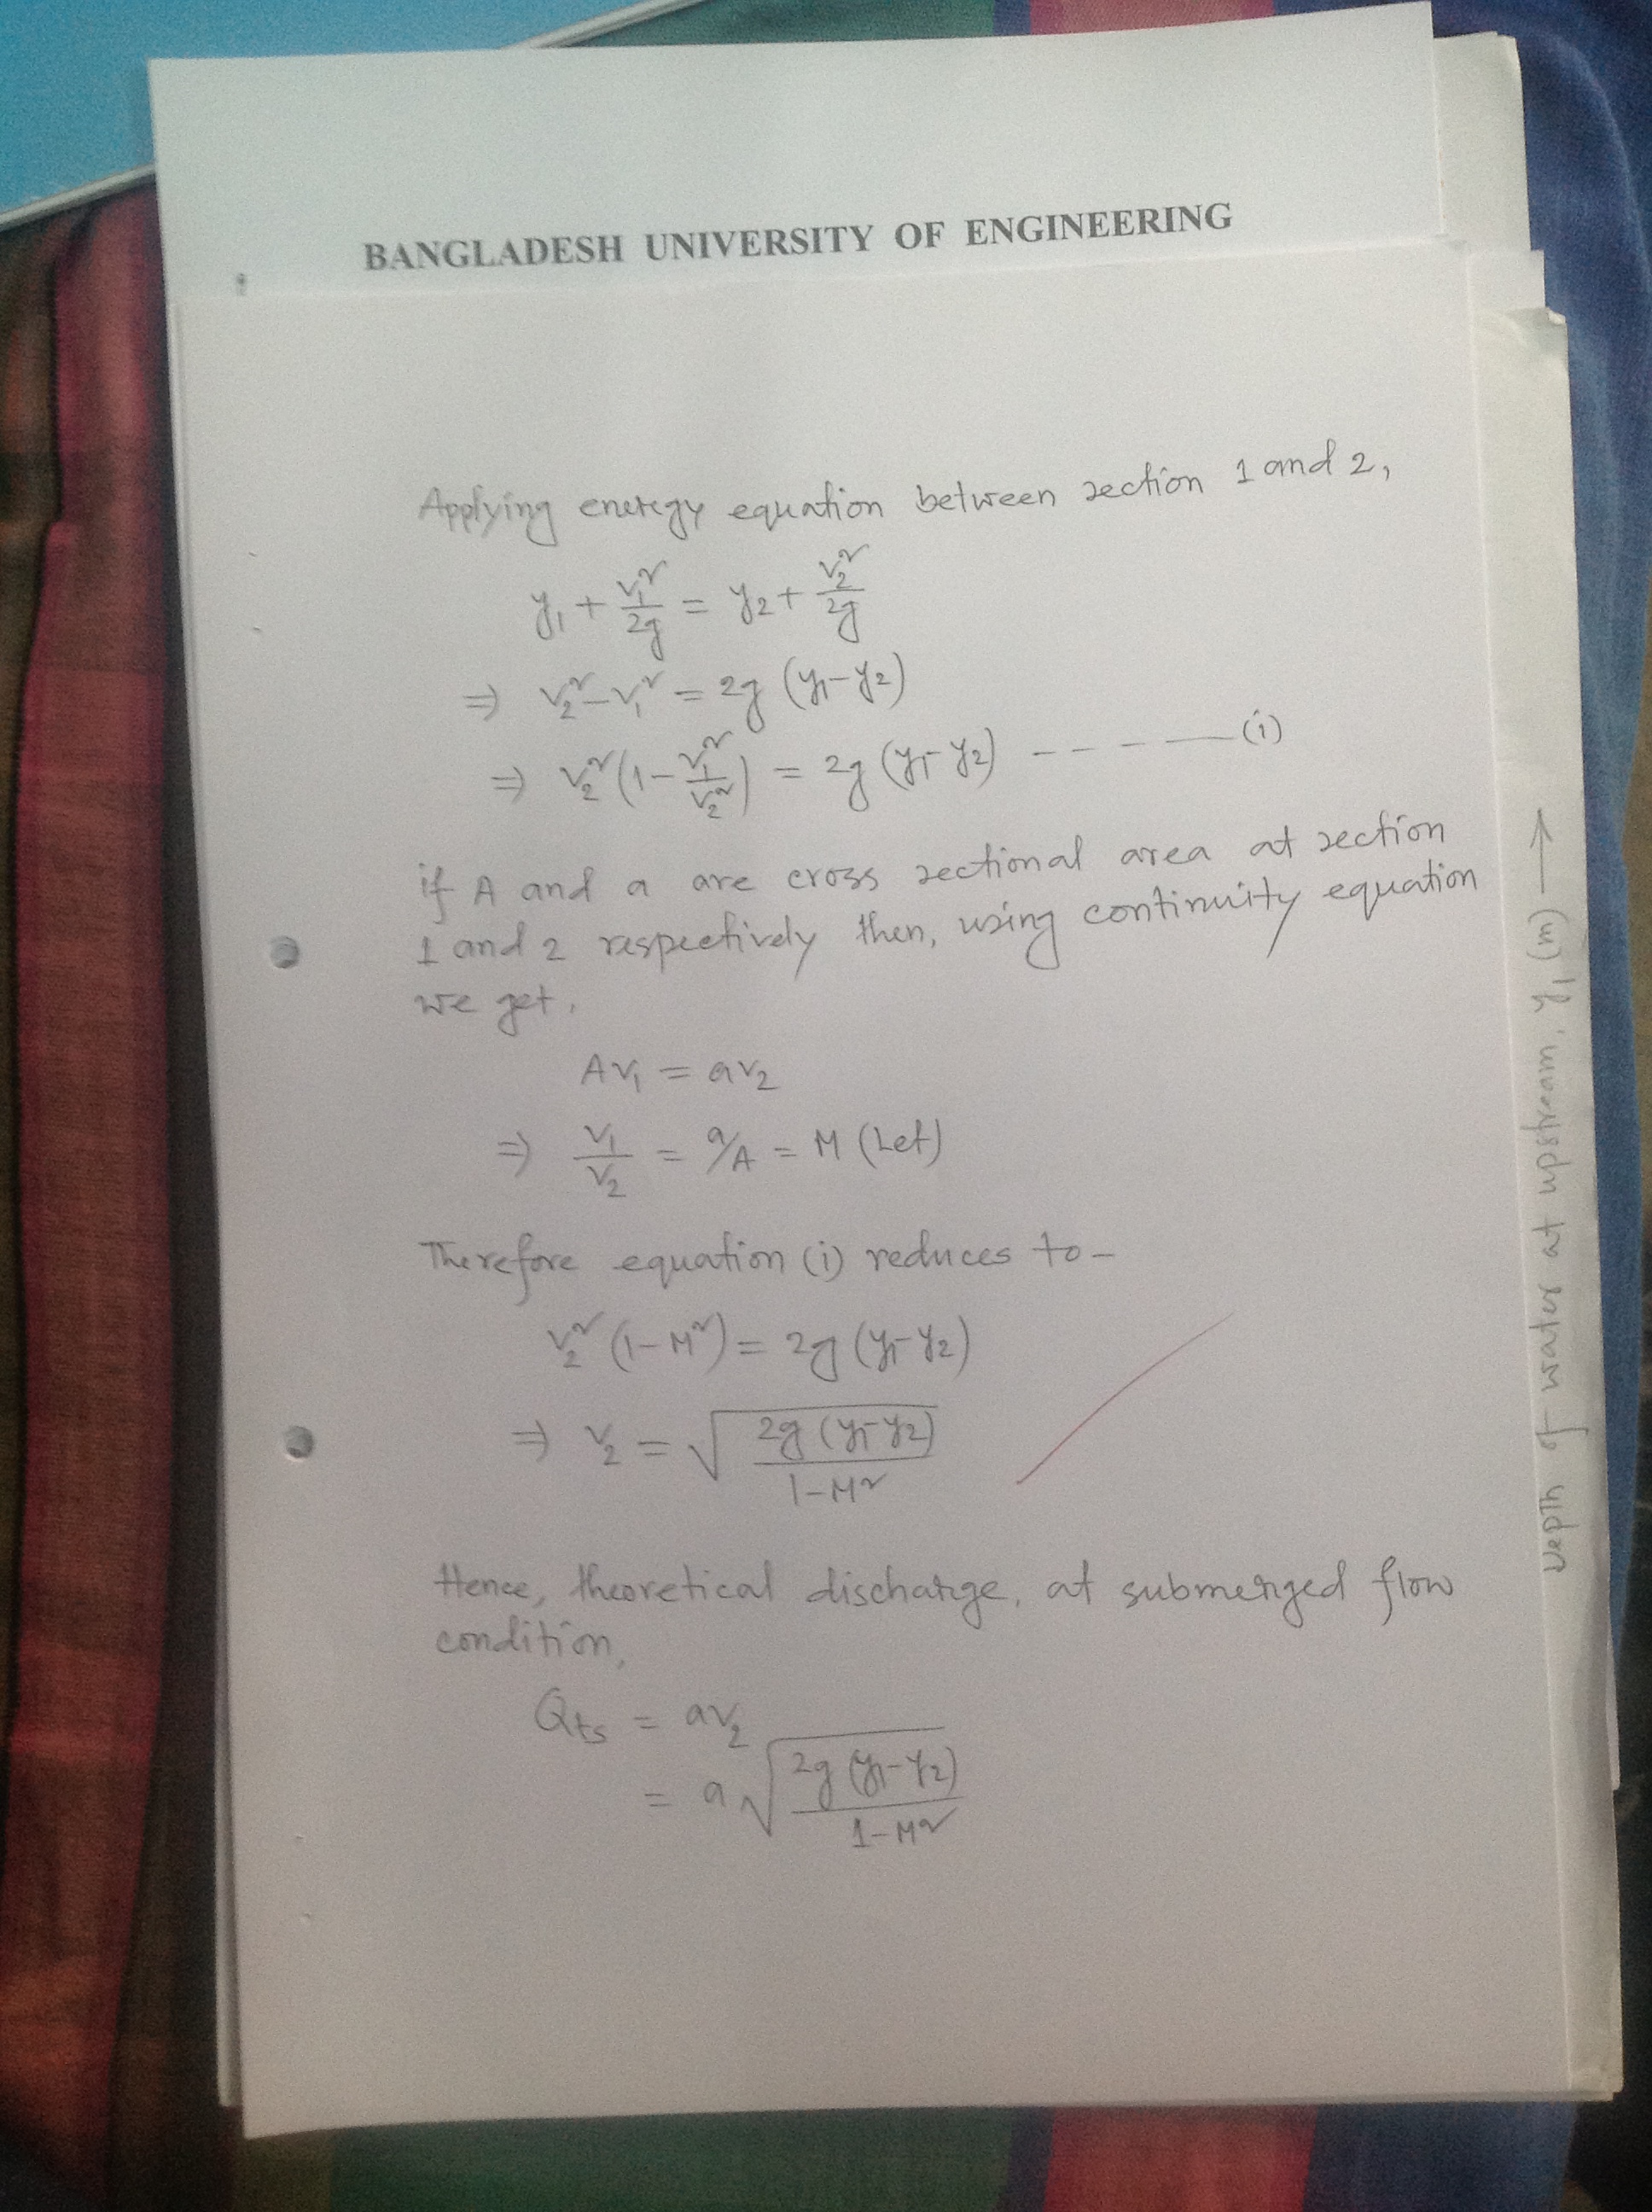 BANGLADESH UNIVERSITY OF ENGINEERING
Applying energy equation between section 1 and 2,
y₁ + v₁²/2g = y₂ + v₂²/2g
⇒ v₂² - v₁² = 2g (y₁ - y₂)
⇒ v₂² (1 - v₁²/v₂²) = 2g (y₁ - y₂) - - - - — (i)
if A and a are cross sectional area at section
1 and 2 respectively then, using continuity equation
we get,
Av₁ = av₂
⇒ v₁/v₂ = a/A = M (Let)
Therefore equation (i) reduces to -
v₂² (1 - M²) = 2g (y₁ - y₂)
⇒ v₂ = √(2g (y₁ - y₂)/(1 - M²))
Hence, theoretical discharge, at submerged flow
condition,
Qts = av₂
= a √(2g (y₁ - y₂)/(1 - M²))
Depth of water at upstream, y₁ (m) →